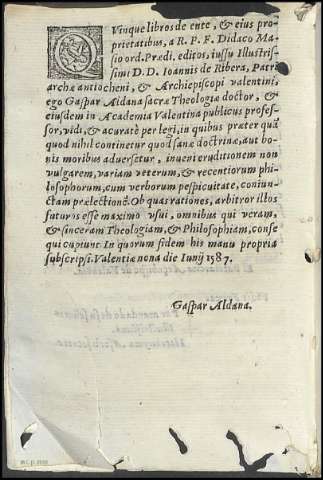 QVinque libros de ente, & eius pro
prietatibus, a R. P. F. Didaco Ma
sio ord. Prædi. editos, iussu Illustris-
simi D. D. Ioannis de Ribera, Patri
archæ antiocheni, & Archiepiscopi valentini,
ego Gaspar Aldana sacræ Theologiæ doctor, &
eiusdem in Academia Valentina publicus profes-
sor, vidi, & acuratè per legi, in quibus præter quā
quod nihil continetur quod sanæ doctrinæ, aut bo
nis moribus aduersetur, inueni eruditionem non
vulgarem, variam veterum, & recentiorum phi
losophorum, cum verborum pespicuitate, coniun-
ctam prælectionē. Ob quas rationes, arbitror illos
futuros esse maximo vsui, omnibus qui veram,
& sinceram Theologiam, & Philosophiam, conse
qui capiunt. In quorum fidem his manu propria
subscripsi. Valentiæ nona die Iunij 1587.
Gaspar Aldana.